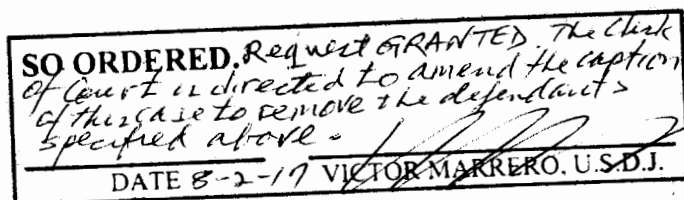 SO ORDERED. Request GRANTED. The Clerk
of Court is directed to amend the caption
of this case to remove the defendants
specified above.
DATE 8-2-17 VICTOR MARRERO, U.S.D.J.